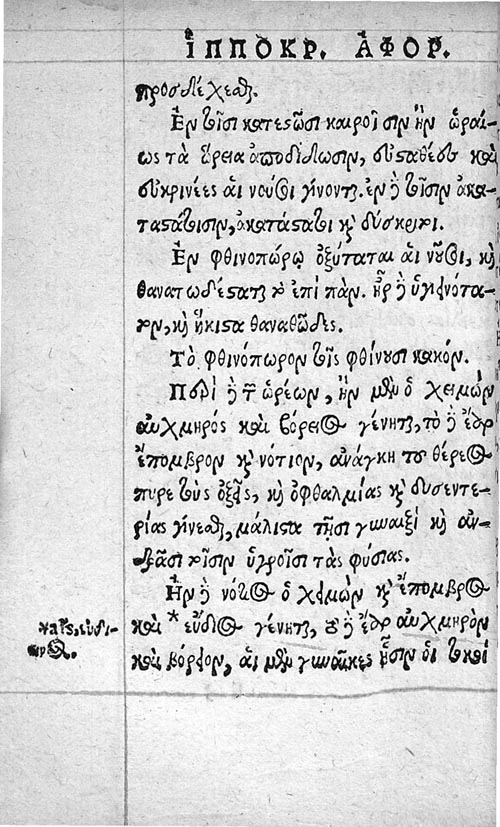 ἹΠΠΟΚΡ. ἈΦΟΡ.
προσδέχεσθαι.
Ἐν τοῖσι κατεστεῶσι καιροῖσιν ἢν ὡραί-
ως τὰ ὥρεια ἀποδιδῶσιν, εὐσταθέες καὶ
εὐκρινέες αἱ νοῦσοι γίνονται. ἐν δὲ τοῖσιν ἀκα-
ταστάτοισιν, ἀκατάστατοι καὶ δύσκριτοι.
Ἐν φθινοπώρῳ ὀξύταται αἱ νοῦσοι, καὶ
θανατωδέσταται τὸ ἐπὶ πὰν. ἦρ δὲ ὑγιεινότα-
τον, καὶ ἥκιστα θανατῶδες.
Τὸ φθινόπωρον τοῖς φθίνουσι κακόν.
Περὶ δὲ τῶν ὡρέων, ἢν μὲν ὁ χειμὼν
αὐχμηρός καὶ βόρειος γένηται, τὸ δὲ ἔαρ
ἔπομβρον καὶ νότιον, ἀνάγκη τοῦ θέρεος
πυρετοὺς ὀξεῖς, καὶ ὀφθαλμίας καὶ δυσεντε-
ρίας γίνεσθαι, μάλιστα τῇσι γυναιξὶ καὶ ἀν-
δράσι τοῖσιν ὑγροῖσι τὰς φύσιας.
Ἢν δὲ νότιος ὁ χειμὼν καὶ ἔπομβρος
καὶ * εὔδιος γένηται, τὸ δὲ ἔαρ αὐχμηρὸν
καὶ βόρειον, αἱ μὲν γυναῖκες ᾗσιν οἱ τόκοι